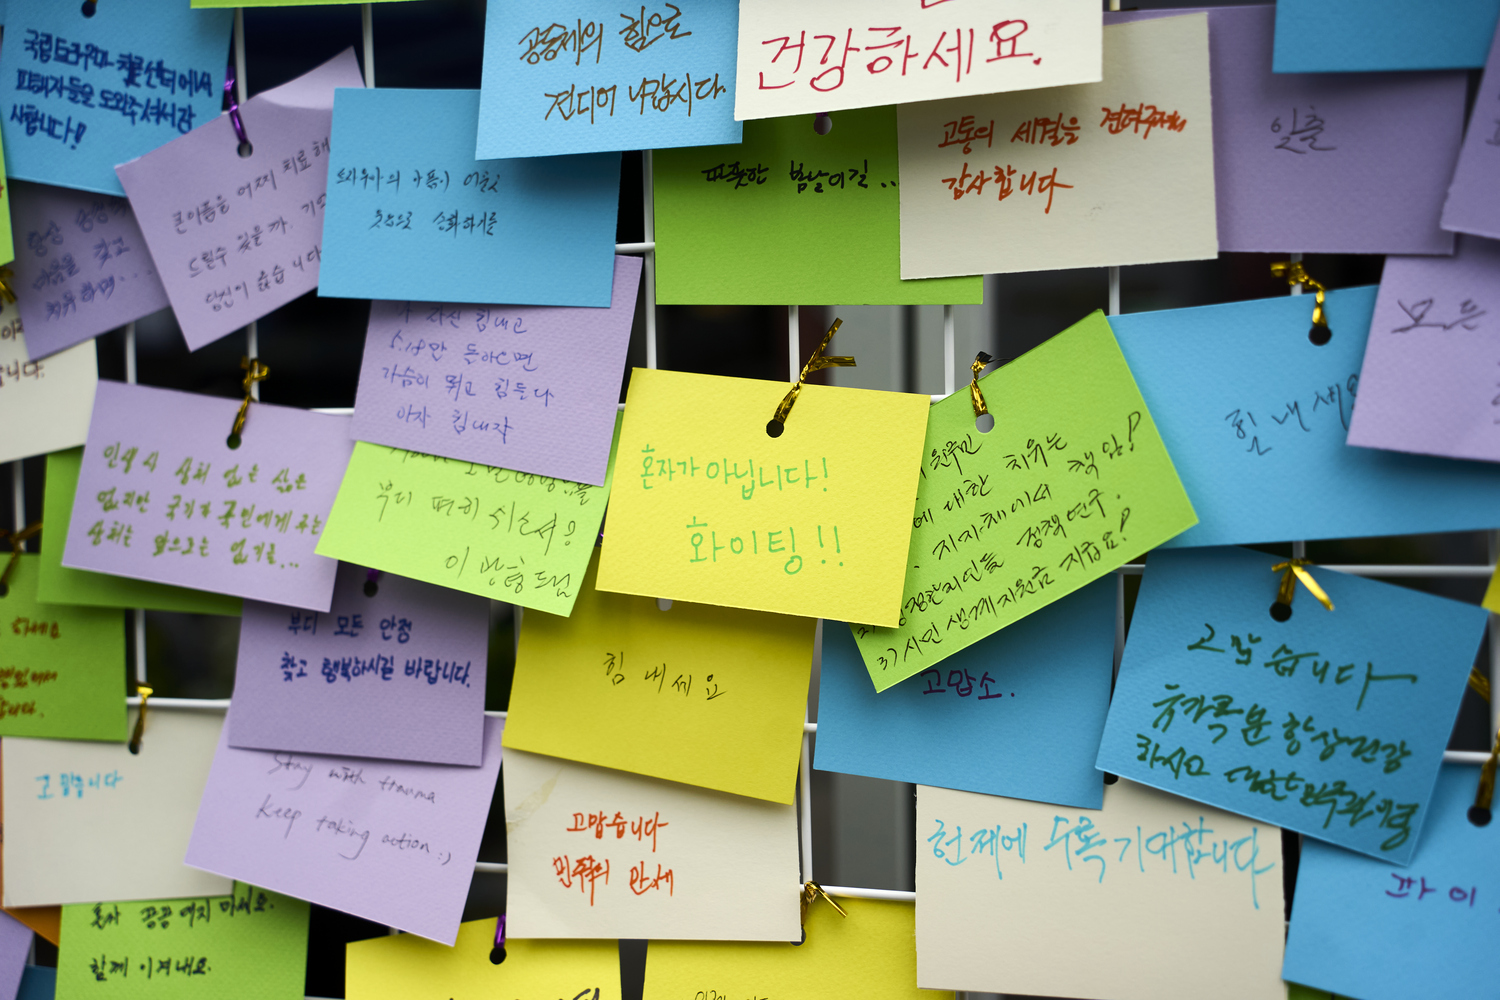 국립트라우마치유센터에서
피해자들을 도와주셔서 감
사합니다!
공동체의 힘으로
견디어 나갑시다.
건강하세요.
고통의 세월을 견뎌주셔서
감사합니다
따뜻한 봄날이길..
일출
큰아픔을 어찌 치료해
드릴수 있을까. 기억
당신이 옳습니다
트라우마의 아픔이
승화하시를
마음을 찾고
치유하면...
자신 힘내고
5.18만 돌아오면
가슴이 뛰고 힘든다
아자 힘내자
모든
힘내세요
인생사 상처 없는 삶은
없지만 국가가 국민에게 주는
상처는 앞으로는 없기를...
부디 편히 쉬소서?
이 드림
혼자가 아닙니다!
화이팅!!
에 대한 치유는
지자체에서 책임!
정책연구.
3) 시민 생계지원금 지급요!
부디 모든 안정
찾고 행복하시길 바랍니다.
힘내세요
고맙소.
고맙습니다
항상건강
하시고
고맙습니다
Stay with trauma
Keep taking action :)
고맙습니다
민주의 만세
헌재에 수록 기대합니다
혼자 끙끙대지 마세요.
함께 이겨내요.